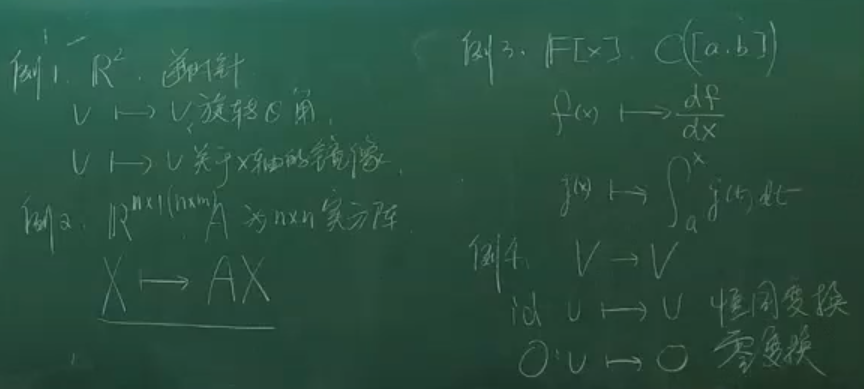 例1. R², 逆时针
v ↦ v 旋转θ角,
v ↦ v 关于x轴的镜像.
例2. R^{n×1(n×m)} A 为n×n实方阵.
X ↦ AX
例3. F[x], C([a,b])
f(x) ↦ df/dx
f(x) ↦ ∫_a^x f(t)dt
例4. V → V
id v ↦ v 恒同变换
O: v ↦ 0 零变换